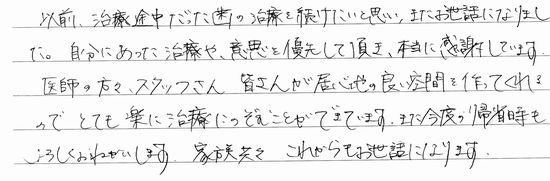 以前、治療途中だった歯の治療を続けたいと思い、またお世話になりまし
た。自分にあった治療や、意思を優先して頂き、本当に感謝しています。
医師の方々、スタッフさん 皆さんが居心地の良い空間を作ってくれる
ので とても 楽に治療にのぞむことができています。また今度の帰省時も
よろしくおねがいします。家族共々 これからもお世話になります。